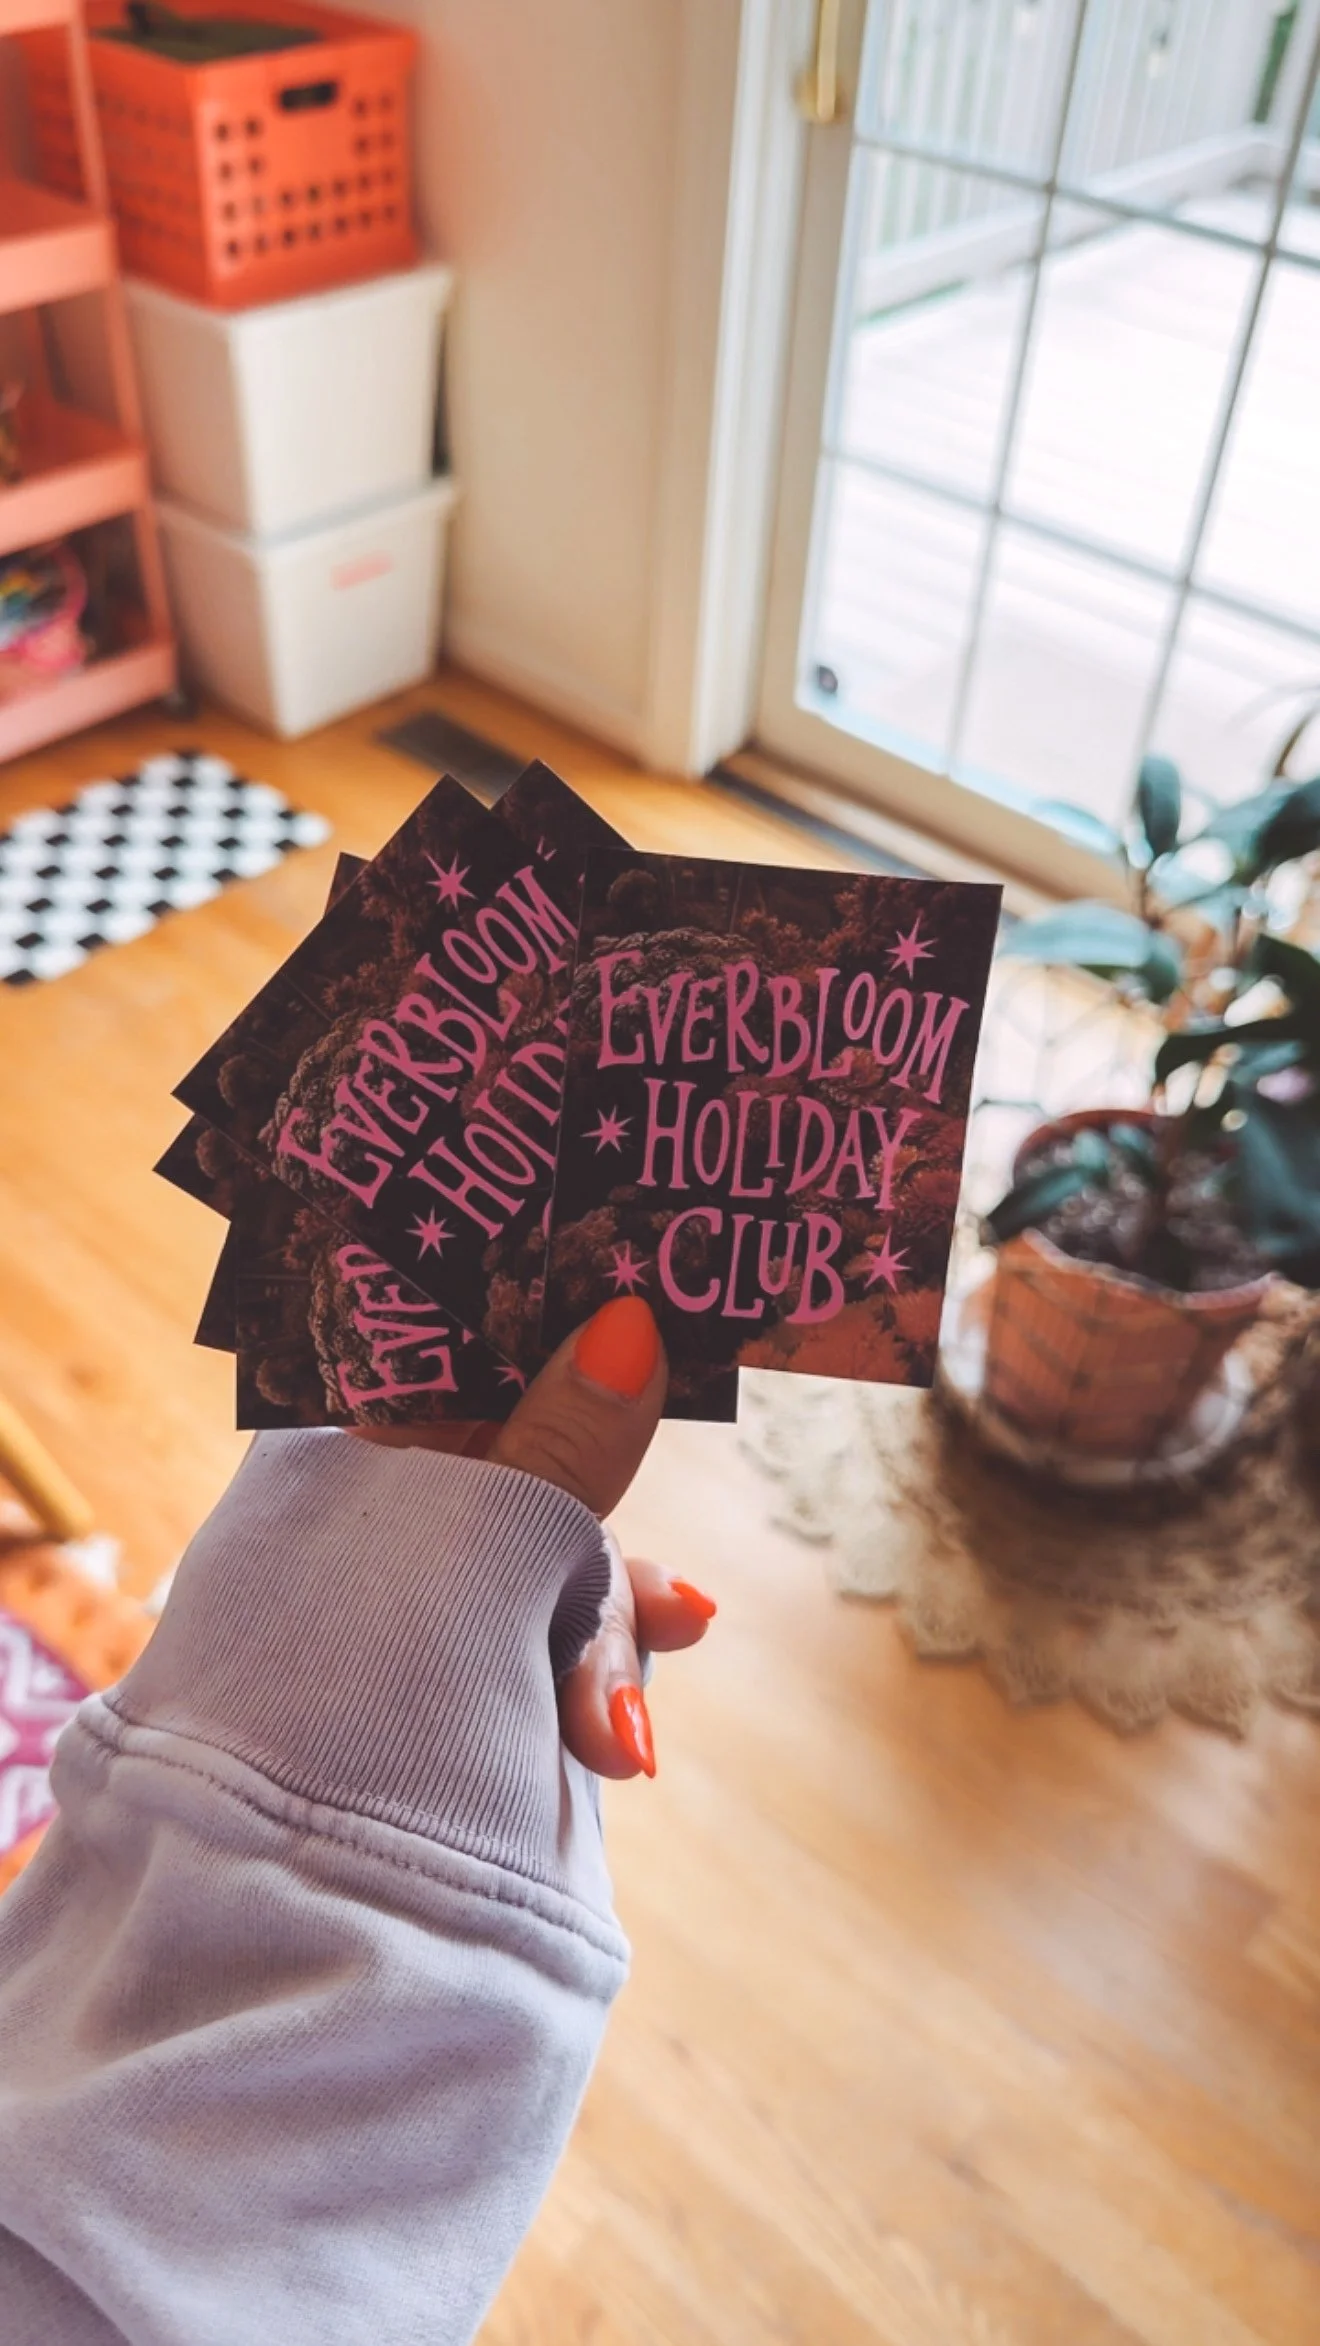 EVERBLOOM
HOLIDAY
CLUB
EVERBLOOM
HOLID
EVER